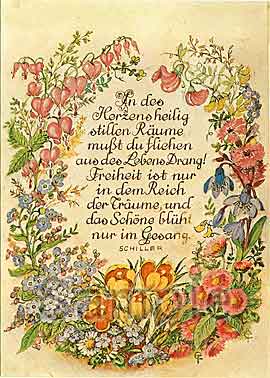 In des
Herzens heilig
stillen Räume
mußt du fliehen
aus des Lebens Drang!
Freiheit ist nur
in dem Reich
der Träume, und
das Schöne blüht
nur im Gesang.
SCHILLER